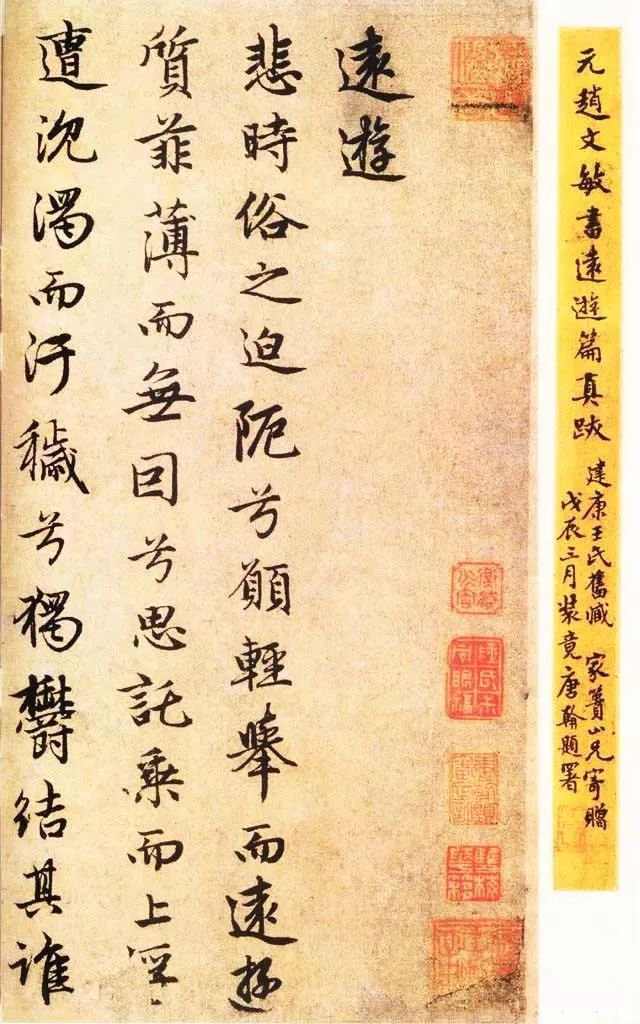 元趙文敏書遠遊篇真跡 建康王氏舊藏 家山兄寄贈
戊辰三月裝竟唐翰題署
遠遊
悲時俗之迫阨兮願輕舉而遠遊
質菲薄而無因兮思託乘而上浮
遭沈濁而汙穢兮獨鬱結其誰